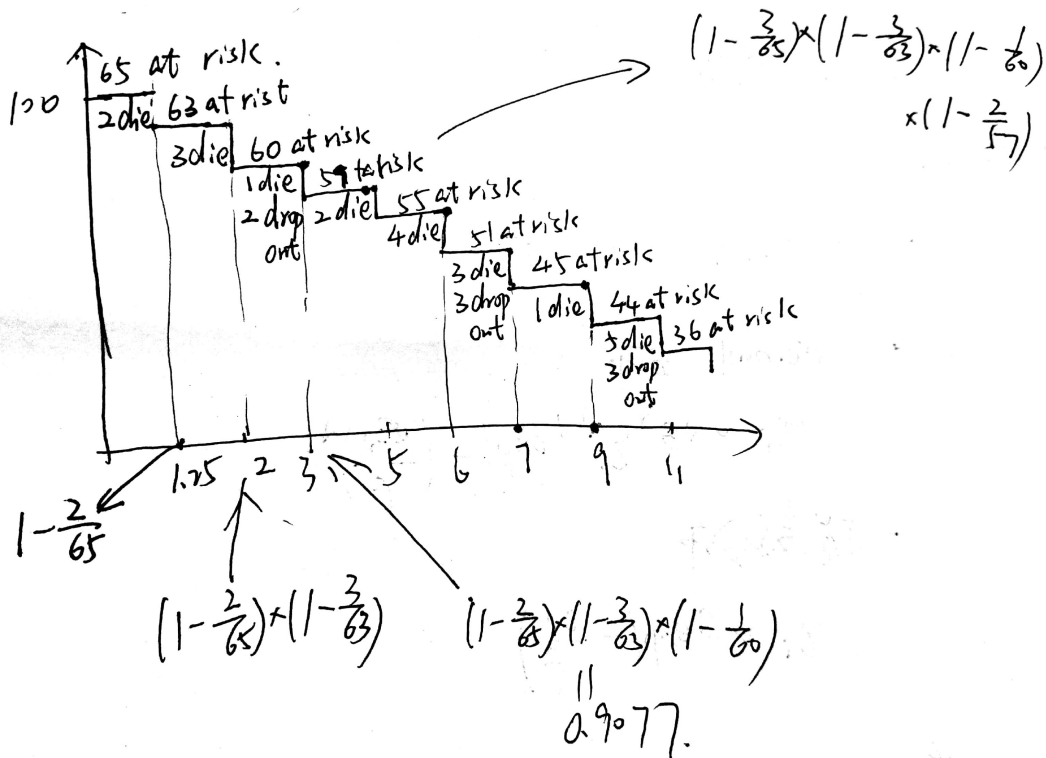 (1-3/65)×(1-3/63)×(1-1/60)
×(1-2/57)
65 at risk.
100
2die
63 at rist
3die
60 at risk
1die
2 drop
out
at risk
2 die
55 at risk
4 die
51 at risk
3 die
3 drop
out
45 at risk
1 die
44 at risk
5 die
3 drop
out
36 at risk
1.25 2 3 5 6 7 9 11
1-2/65
(1-2/65)×(1-3/63)
(1-2/65)×(1-3/63)×(1-1/60)
||
0.9077.